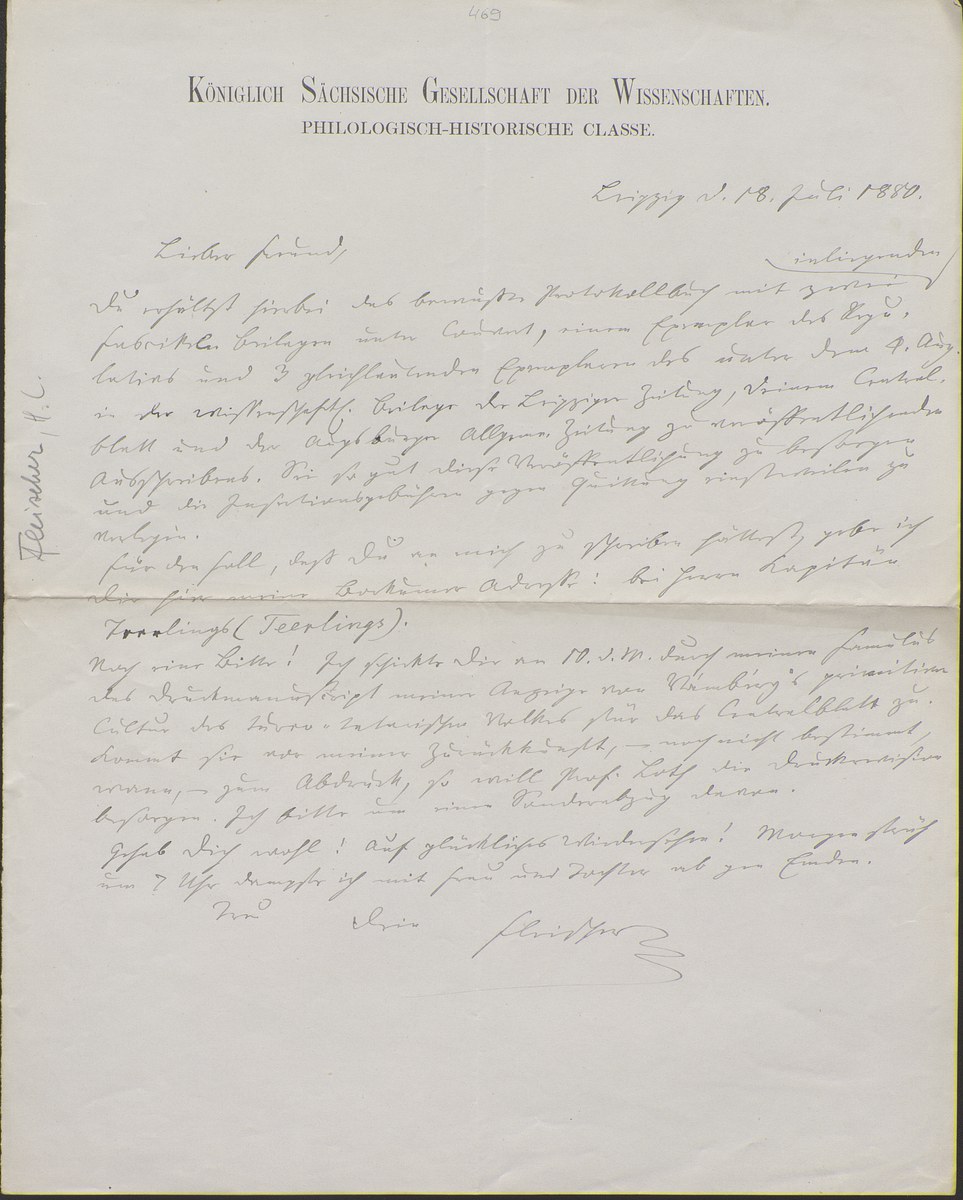 469
KÖNIGLICH SÄCHSISCHE GESELLSCHAFT DER WISSENSCHAFTEN.
PHILOLOGISCH-HISTORISCHE CLASSE.
Leipzig d. 18. Juli 1880.
Lieber Freund,
inliegenden
Du erhältst hierbei das bewußte Protokollbuch mit zwei
Beilagen unter Couvert, einem Exemplar des Regu-
lativs und 3 gleichlautenden Exemplaren des unter dem 1. Aug.
in der wissenschaftl. Beilage der Leipziger Zeitung, Deinem Central-
blatt und der Augsburger Allgem. Zeitung zu veröffentlichenden
Ausschreibens. Sei so gut diese Veröffentlichung zu besorgen
und die Insertionsgebühren gegen Quittung einstweilen zu
verlegen.
Für den Fall, daß Du an mich zu schreiben hättest, gebe ich
Dir hier meine Borkumer Adresse: bei Herrn Kapitän
Teerlings (Teerlings).
Noch eine Bitte! Ich schickte Dir am 10. d. M. durch meinen Famulus
das Druckmanuskript meiner Anzeige von Vámbéry's primitiver
Cultur des turco-tatarischen Volkes für das Centralblatt zu.
Kommt sie vor meiner Zurückkunft, – noch nicht bestimmt,
wann, – zum Abdruck, so will Prof. Loth die Druckrevision
besorgen. Ich bitte um einen Sonderabzug davon.
Gehab Dich wohl! Auf glückliches Wiedersehen! Morgen früh
um 7 Uhr dampfe ich mit Frau und Tochter ab gen Emden.
Treu Dein Fleischer
Fleischer, H. L.